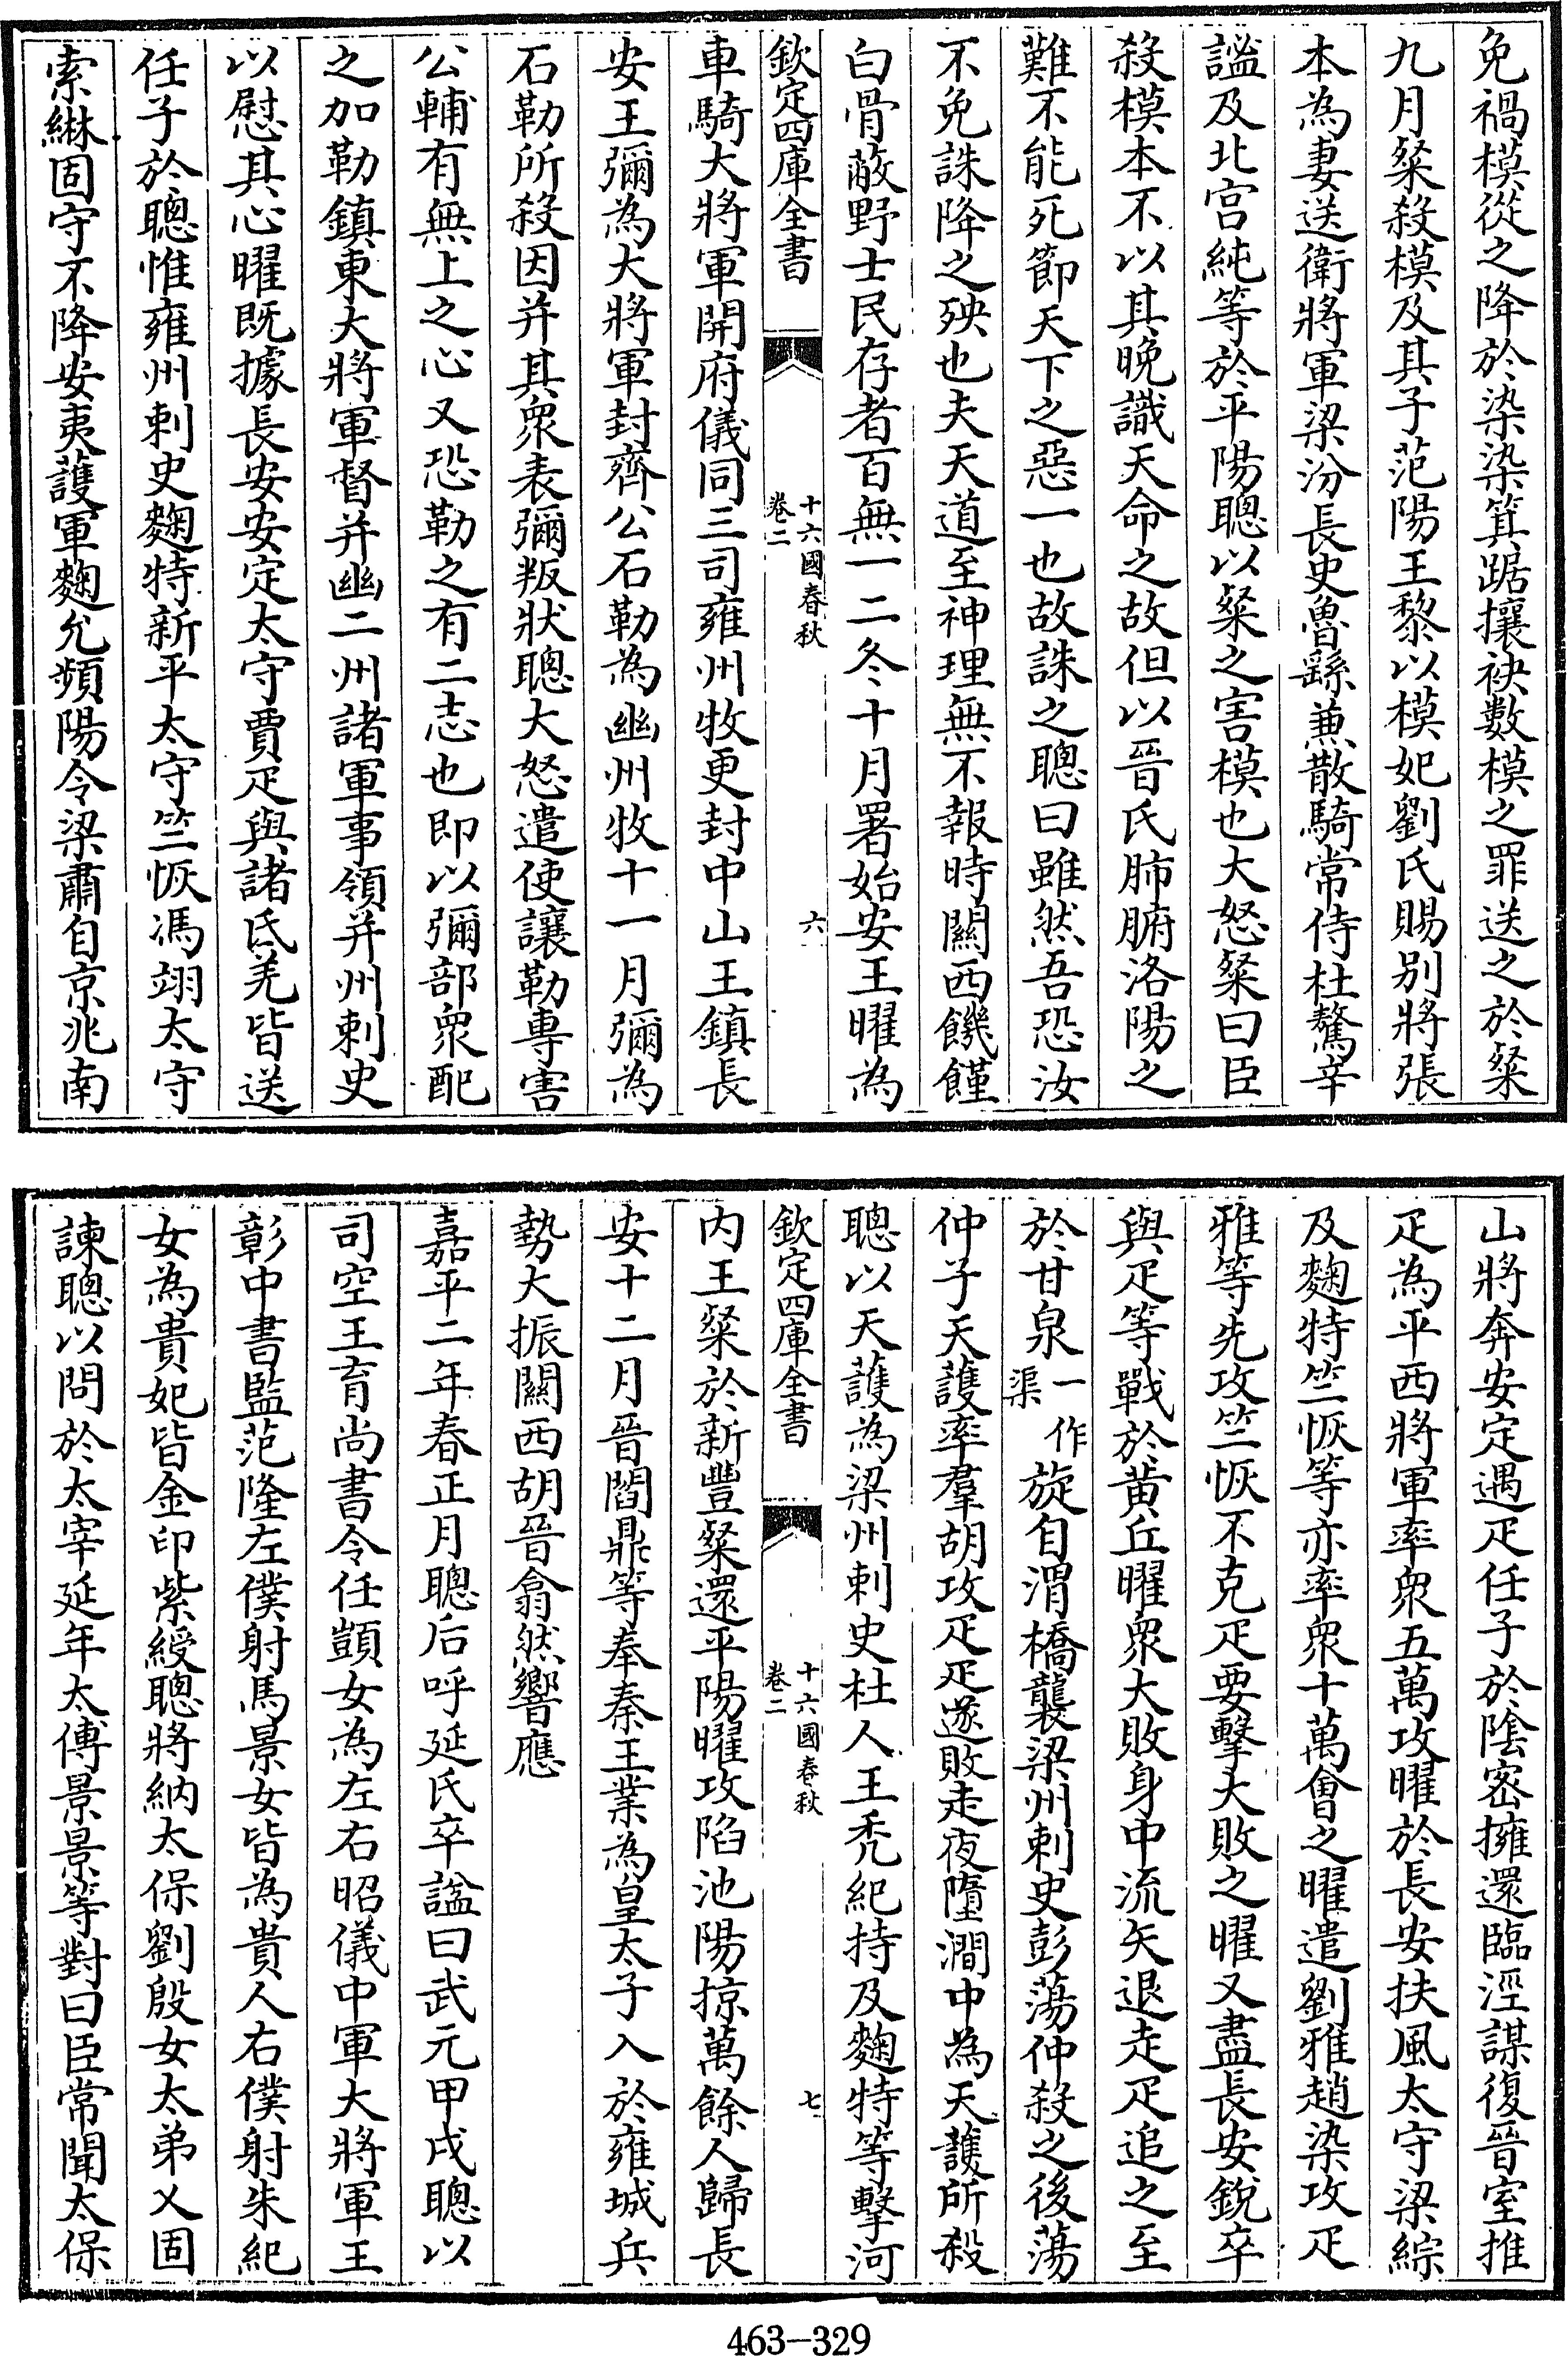 免禍模從之降於染染箕踞攘袂數模之罪送之於粲
九月粲殺模及其子范陽王黎以模妃劉氏賜别將張
本為妻送衛將軍梁汾長史魯繇兼散騎常侍杜驁辛
謐及北宫純等於平陽聰以粲之害模也大怒粲曰臣
殺模本不以其晚識天命之故但以晉氏肺腑洛陽之
難不能死節天下之惡一也故誅之聰曰雖然吾恐汝
不免誅降之殃也夫天道至神理無不報時關西饑饉
白骨蔽野士民存者百無一二冬十月署始安王曜為
欽定四庫全書
十六國春秋
卷二
六
車騎大將軍開府儀同三司雍州牧更封中山王鎮長
安王彌為大將軍封齊公石勒為幽州牧十一月彌為
石勒所殺因并其衆表彌叛狀聰大怒遣使讓勒專害
公輔有無上之心又恐勒之有二志也即以彌部衆配
之加勒鎮東大將軍督并幽二州諸軍事領并州刺史
以慰其心曜既據長安安定太守賈疋與諸氐羌皆送
任子於聰惟雍州刺史麴特新平太守竺恢馮翊太守
索綝固守不降安夷護軍麴允頻陽令梁肅自京兆南
山將奔安定遇疋任子於隂密擁還臨涇謀復晉室推
疋為平西將軍率衆五萬攻曜於長安扶風太守梁綜
及麴特竺恢等亦率衆十萬會之曜遣劉雅趙染攻疋
雅等先攻竺恢不克疋要擊大敗之曜又盡長安銳卒
與疋等戰於黄丘曜衆大敗身中流矢退走疋追之至
於甘泉一作渠旋自渭橋襲梁州刺史彭蕩仲殺之後蕩
仲子天護率羣胡攻疋疋遂敗走夜墮澗中為天護所殺
聰以天護為梁州刺史杜人王秃紀持及麴特等擊河
欽定四庫全書
十六國春秋
卷二
七
内王粲於新豐粲還平陽曜攻陷池陽掠萬餘人歸長
安十二月晉閻鼎等奉秦王業為皇太子入於雍城兵
勢大振關西胡晉翕然響應
嘉平二年春正月聰后呼延氏卒諡曰武元甲戌聰以
司空王育尚書令任顗女為左右昭儀中軍大將軍王
彰中書監范隆左僕射馬景女皆為貴人右僕射朱紀
女為貴妃皆金印紫綬聰將納太保劉殷女太弟乂固
諫聰以問於太宰延年太傅景景等對曰臣常聞太保
463-329